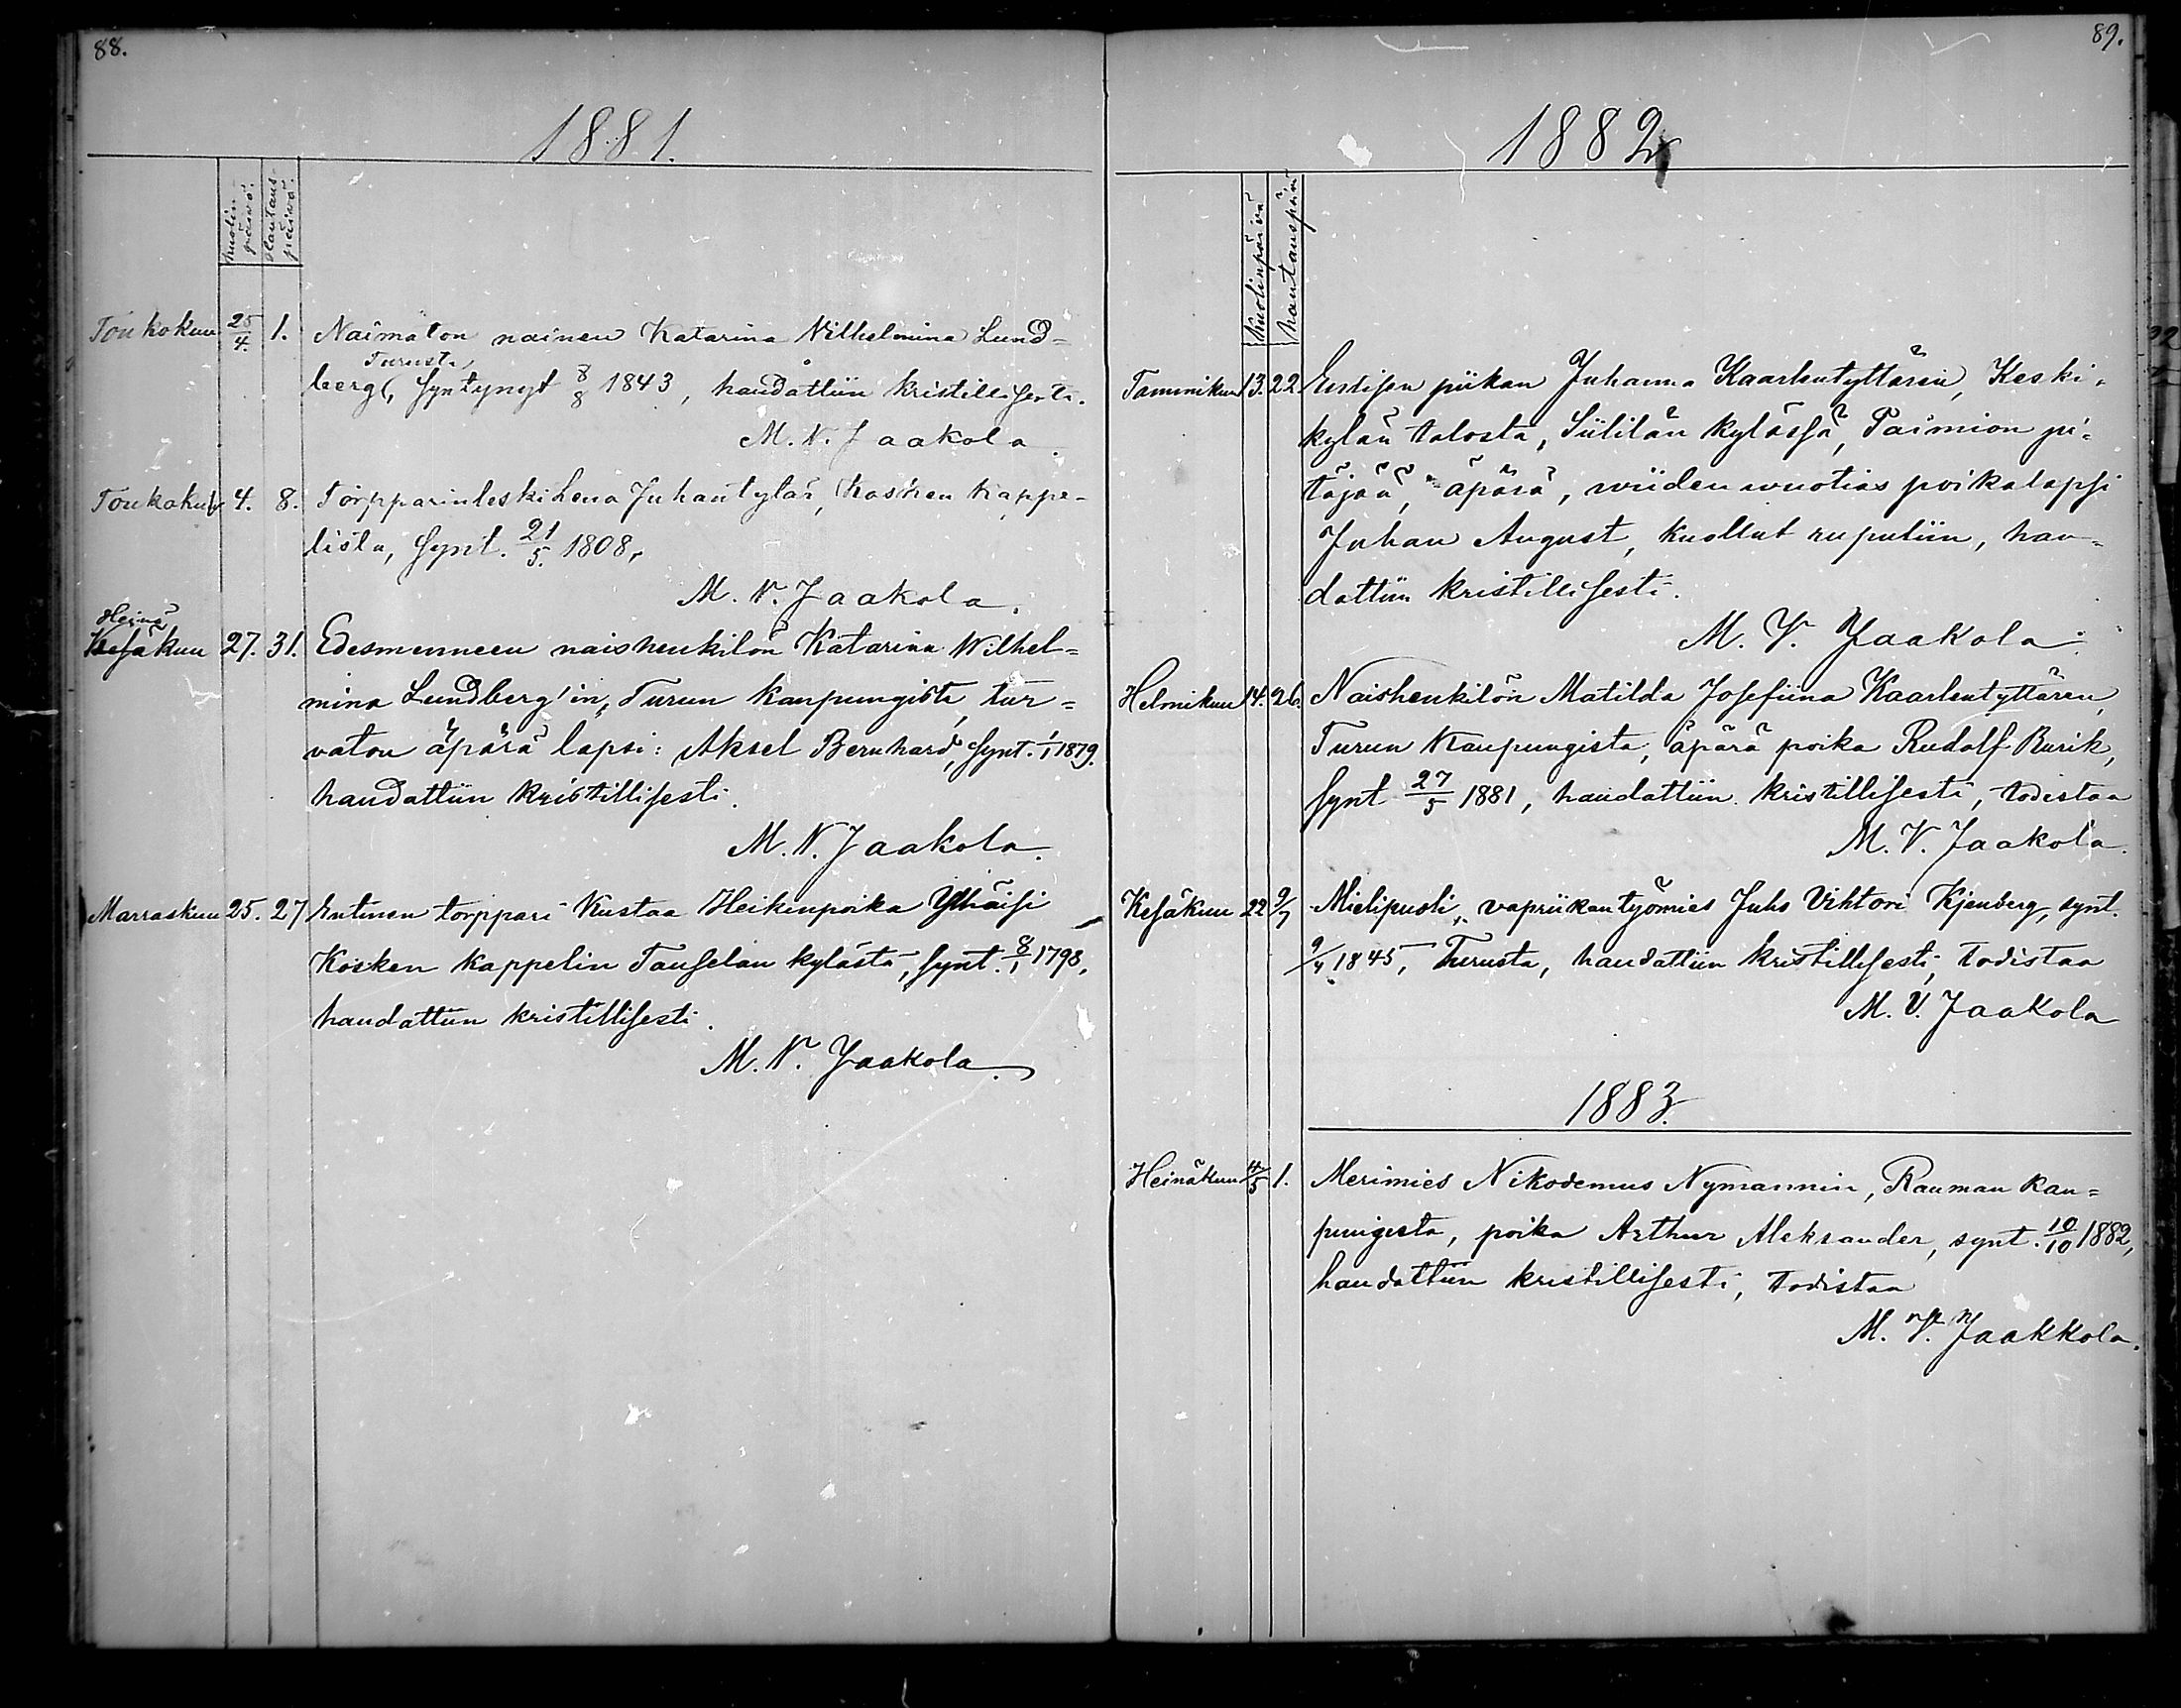 88.
1881.
kuolin-
päivä.
hautaus-
päivä.
Toukokuu 25/4. 1. Naimaton nainen Katarina Wilhelmina Lund-
Turusta
berg, syntynyt 8/8 1843, haudattiin kristillisesti.
M. V. Jaakola.
Toukokuu 4. 8. Torpparinleski Lena Juhantytär, Kosken kappe-
lista, synt. 21/5. 1808,
M. V. Jaakola.
Heinä
Kesäkuu 27. 31. Edesmenneen naishenkilön Katarina Wilhel=
mina Lundberg'in, Turun kaupungista, tur=
vaton äpärä lapsi: Aksel Bernhard, synt. 1/1 1879.
haudattiin kristillisesti.
M. V. Jaakola.
Marraskuu 25. 27 Entinen torppari Kustaa Heikinpoika Yhäisi
Kosken kappelin Tauselan kylästä, synt. 8/1 1798,
haudattiin kristillisesti.
M. V. Jaakola.
89.
1882
kuolinpäivä
hautauspäivä
Tammikuu 13. 22. Entisen piikan Juhanna Kaarlentyttären, Keski-
kylän talosta, Siililän kylässä, Paimion pi-
täjää, äpärä, wiiden wuotias poikalapsi
Juhan August, kuollut rupuliin, hau-
dattiin kristillisesti.
M. V. Jaakola.
Helmikuu 14. 26. Naishenkilön Matilda Josefiina Kaarlentyttären,
Turun Kaupungista, äpärä poika Rudolf Rurik,
synt 27/5 1881, haudattiin kristillisesti, todistaa
M. V. Jaakola.
Kesäkuu 22 9/7 Mielipuoli, vapriikantyömies Juho Vihtori Kjenberg, synt.
9/4 1845, Turusta, haudattiin kristillisesti, todistaa
M. V. Jaakola
1883.
Heinäkuu 4/5 1. Merimies Nikodemus Nymannin, Rauman kau=
pungista, poika Arthur Aleksander, synt. 10/10 1882,
haudattiin kristillisesti, todistaa
M. V. Jaakkola.